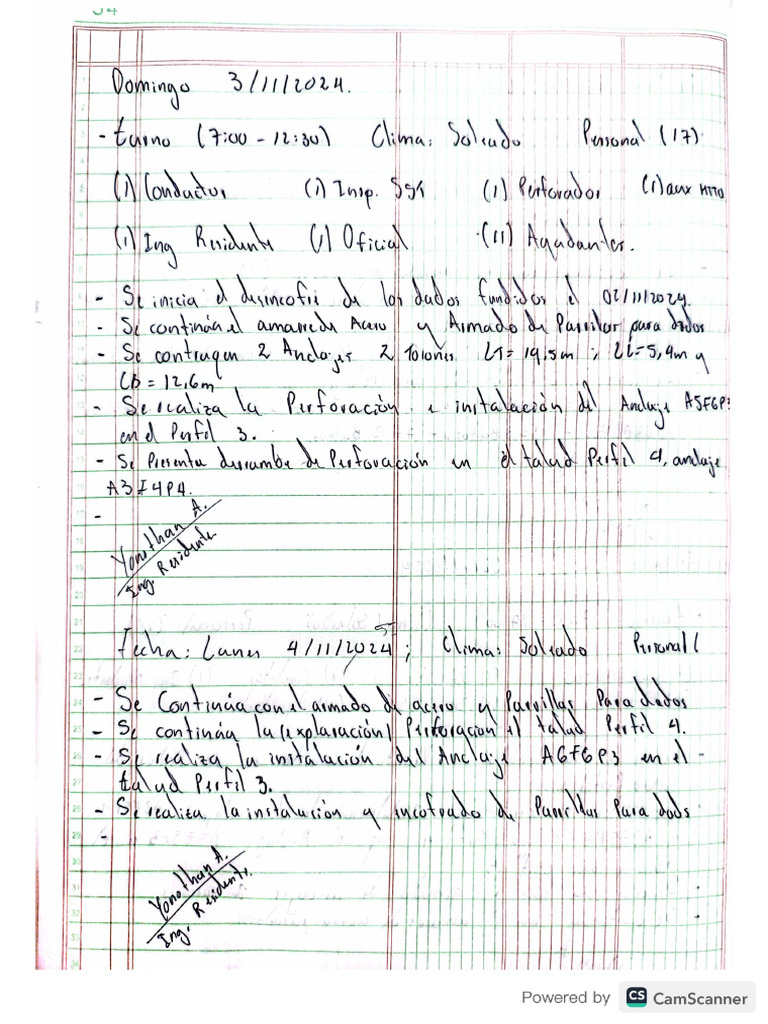 54
Domingo 3/11/2024.
- turno (7:00 - 12:30) Clima: Soleado Personal (17)
(1) Conductor (1) Insp. SSt (1) Perforador (1) aux MTTO
(1) Ing Residente (1) Oficial (11) Ayudantes.
- Se inicia el desencofre de los dados fundidos el 02/11/2024.
- Se continúa el amarre de Acero y Armado de Parrillas para dados
- Se contruyen 2 Anclajes 2 Torones LT= 19,5m ; LL=5,4m y
LB = 12,6m
- Se realiza la Perforación e instalación del Anclaje A5F6P3
en el Perfil 3.
- Se Presenta derrumbe de Perforación en el talud Perfil 4, anclaje
A3F4P4.
-
Yonathan A.
Ing Residente
Fecha: Lunes 4/11/2024; Clima: Soleado Personal (
- Se Continúa con el armado de acero y Parrillas Para dados
- Se continúa la (explaración) Perforacion el talud Perfil 4.
- Se realiza la instalación del Anclaje A6F6P3 en el
talud Perfil 3.
- Se realiza la instalación y encofrado de Parrillas Para dads
-
Yonathan A.
Ing. Residente.
Powered by CS CamScanner